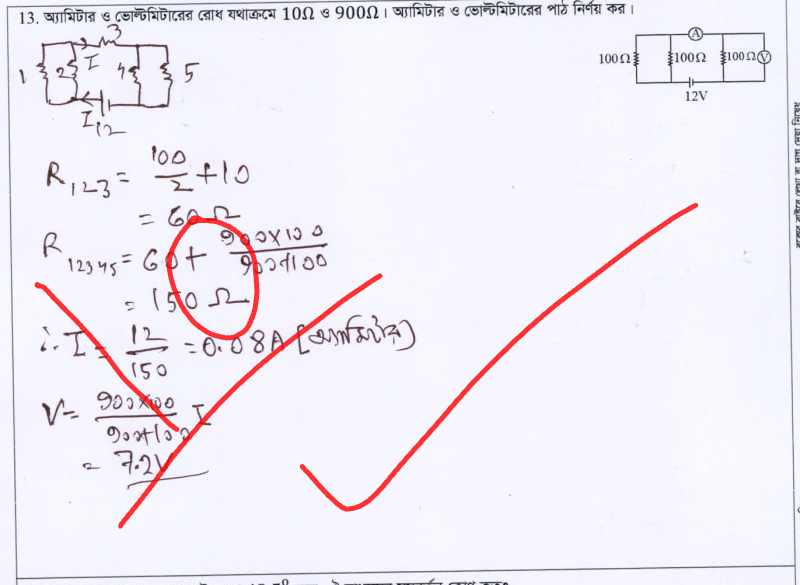 13. অ্যামিটার ও ভোল্টমিটারের রোধ যথাক্রমে 10Ω ও 900Ω। অ্যামিটার ও ভোল্টমিটারের পাঠ নির্ণয় কর।
A
100Ω 100Ω 100Ω V
12V
3
1 2 I 4 5
I 12
R₁₂₃ = 100/2 + 10
= 60 Ω
R₁₂₃₄₅ = 60 + 900×100/900+100
= 150 Ω
∴ I = 12/150 = 0.08A (অ্যামিটার)
V = 900×100/900+100 I
= 7.2V